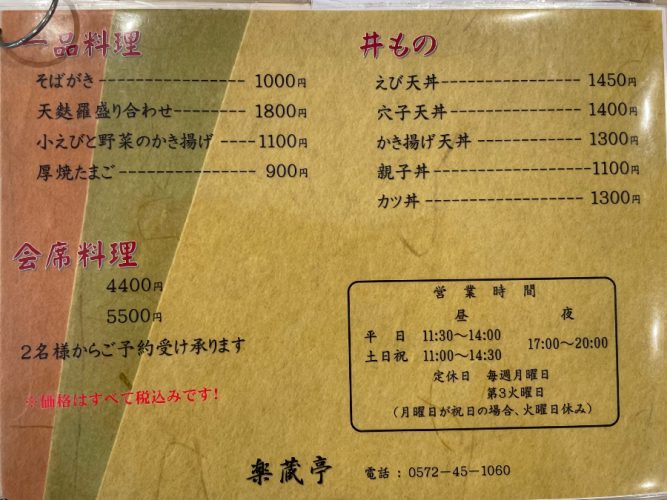 一品料理
そばがき 1000円
天麩羅盛り合わせ 1800円
小えびと野菜のかき揚げ 1100円
厚焼たまご 900円
会席料理
4400円
5500円
2名様からご予約受け承ります
※価格はすべて税込みです!
丼もの
えび天丼 1450円
穴子天丼 1400円
かき揚げ天丼 1300円
親子丼 1100円
カツ丼 1300円
営業時間
昼 夜
平日 11:30～14:00 17:00～20:00
土日祝 11:00～14:30
定休日 毎週月曜日
第3火曜日
(月曜日が祝日の場合、火曜日休み)
楽蔵亭 電話：0572-45-1060